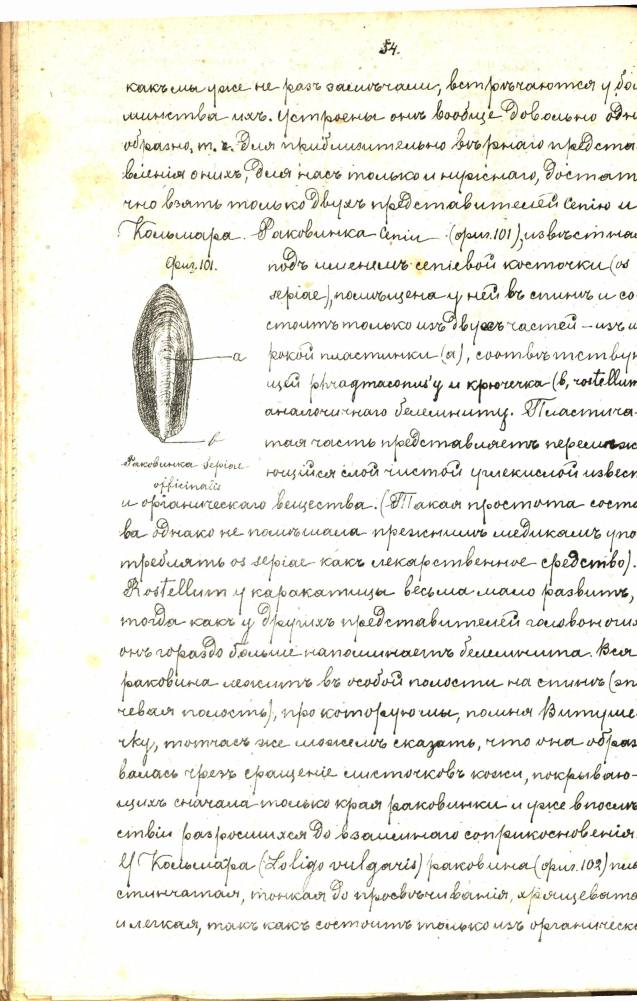 54.
какъ мы уже не разъ замѣчали, встрѣчаются у бол
шинства ихъ. Устроены онѣ вообще довольно одно
образно, т. ч. для приблизительно вѣрнаго предста
вленія о нихъ, для насъ только и нужнаго, достат
чно взять только двухъ представителей Сепію и
Кольмара. Раковинка Сепіи (фиг. 101), извѣстная
Фиг. 101.
подъ именемъ сепіевой косточки (os
sepiae), помѣщена у ней въ спинѣ и со
стоитъ только изъ двухъ частей – изъ ш
рокой пластинки (a), соотвѣтствую
щей phragmaconus'у и крючечка (b, rostellum
аналогичнаго белемниту. Пластинча
тая часть представляетъ перемеж
ающійся слой чистой углекислой извест
a
b
Раковинка Sepiae
officinalis
и органическаго вещества. (Такая простота соста
ва однако не помѣшала прежнимъ медикамъ упо
треблять os sepiae какъ лекарственное средство).
Rostellum у каракатицы весьма мало развитъ,
тогда какъ у другихъ представителей головоногих
онъ гораздо больше напоминаетъ белемнита. Вся
раковина лежитъ въ особой полости на спинѣ (эп
чевая полость), про которую мы, помня Витуше
чку, тотчасъ же можемъ сказать, что она образ
валась чрезъ сращеніе листочковъ кожи, покрываю-
щихъ сначала только края раковинки и уже впослѣ
ствіи разросшихся до взаимнаго соприкосновенія.
У Кольмара (Loligo vulgaris) раковина (фиг. 102) пла
стинчатая, тонкая до просвѣчиванія, хрящевата
и легкая, такъ какъ состоитъ только изъ органическ